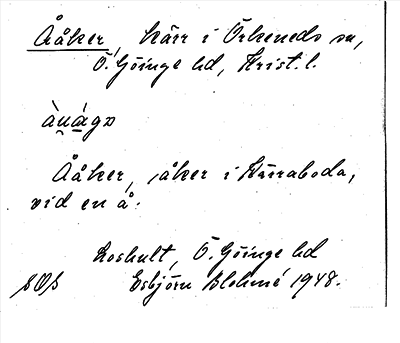 Ååker, kärr i Örkeneds sn,
Ö. Göinge hd, Krist. l.
Ååker, åker i Kärraboda,
vid en å.
Loshult, Ö. Göinge hd
Esbjörn Blohmé 1948.